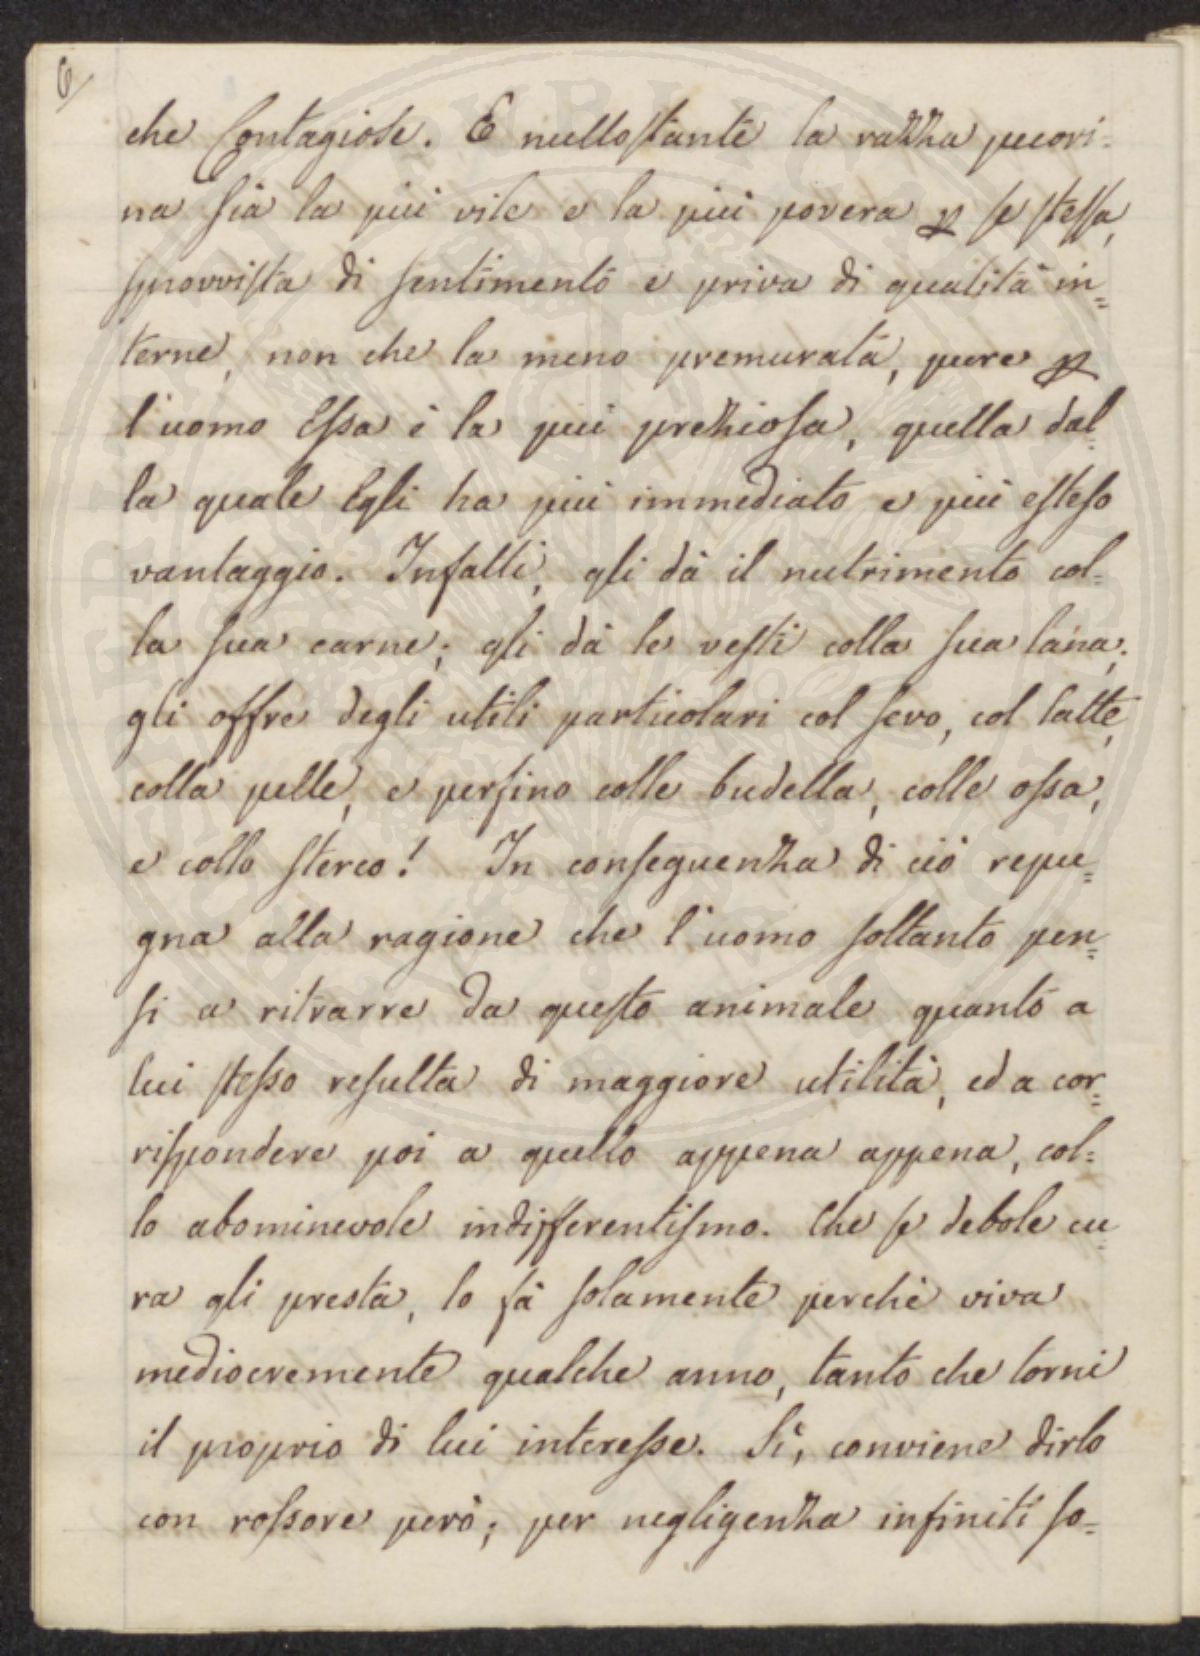 6
che Contagiose. E nullostante la razza pecori=
na sia la più vile e la più povera p se stessa,
sprovvista di sentimento e priva di qualità in=
terne, non che la meno premurata, pure p
l'uomo Essa è la più preziosa, quella dal=
la quale Egli ha più immediato e più esteso
vantaggio. Infatti, gli dà il nutrimento col=
la sua carne; gli dà le vesti colla sua lana;
gli offre degli utili particolari col sevo, col latte,
colla pelle, e persino colle budella, colle ossa,
e collo sterco! In conseguenza di ciò repu=
gna alla ragione che l'uomo soltanto pen=
si a ritrarre da questo animale quanto a
lui stesso resulta di maggiore utilità, ed a cor=
rispondere poi a quello appena appena, col=
lo abominevole indifferentismo. Che se debole cu=
ra gli presta, lo fà solamente perchè viva
mediocremente qualche anno, tanto che torni
il proprio di lui interesse. Si, conviene dirlo
con rossore però; per negligenza infiniti so=